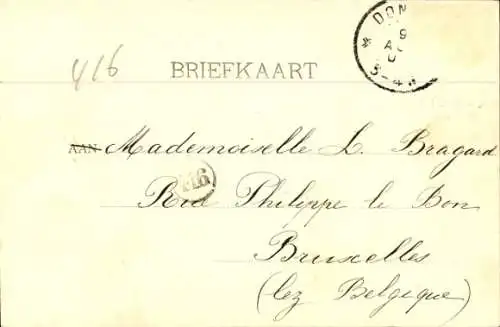 DON
9
AU
5-4
416
BRIEFKAART
AAN Mademoiselle L. Bragard
116
Rue Philippe le Bon
Bruxelles
(lez Belgique)